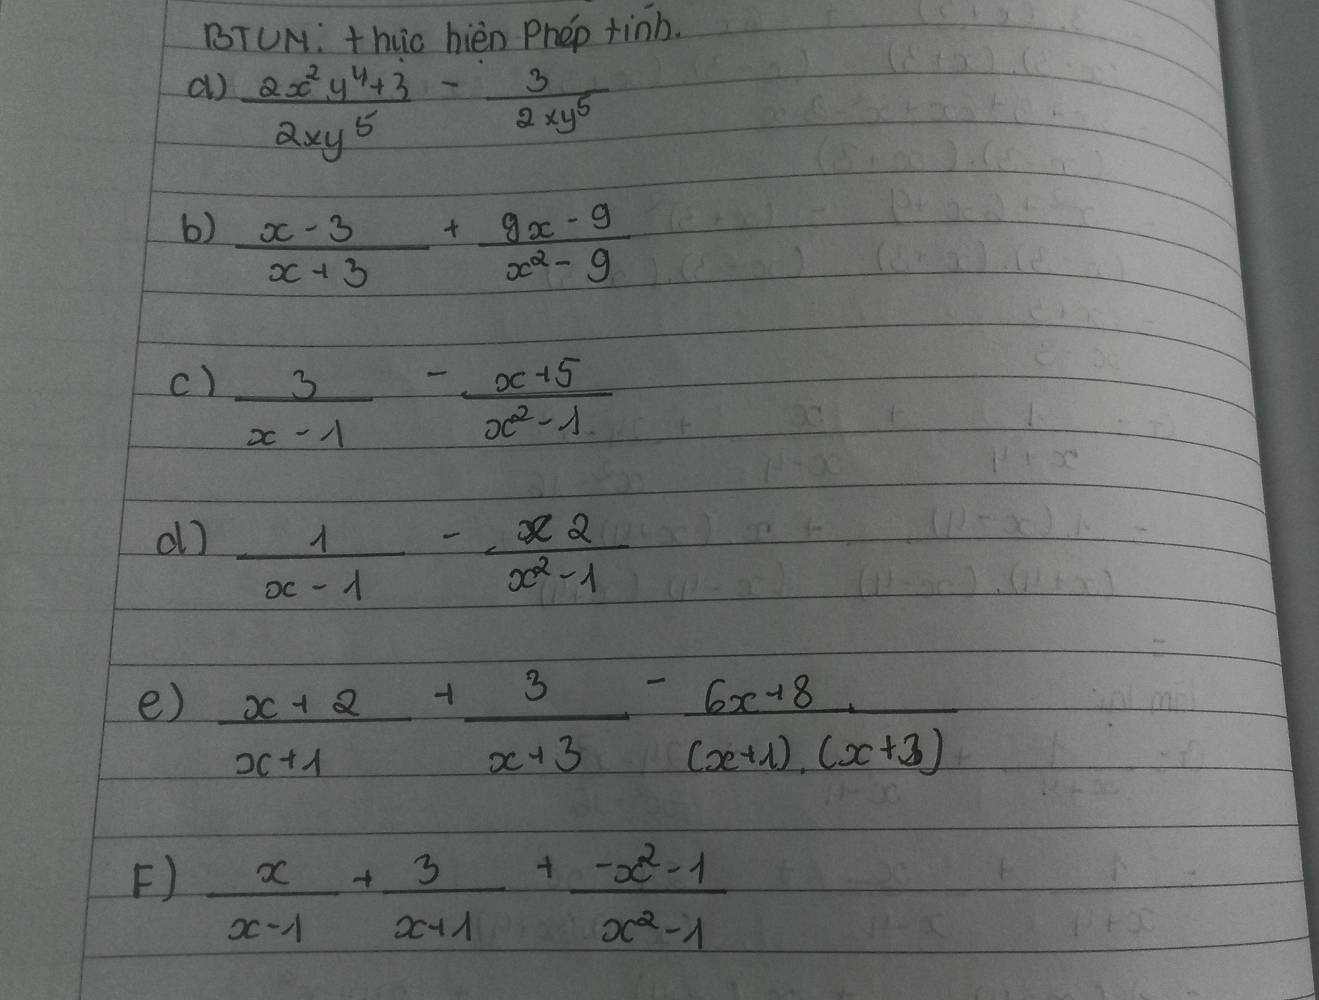 BTUN: thực hiện Phép tính.
a) \frac{2x^2y^4+3}{2xy^5} - \frac{3}{2xy^5}
b) \frac{x-3}{x+3} + \frac{9x-9}{x^2-9}
c) \frac{3}{x-1} - \frac{x+5}{x^2-1}
d) \frac{1}{x-1} - \frac{2}{x^2-1}
e) \frac{x+2}{x+1} + \frac{3}{x+3} - \frac{6x+8}{(x+1).(x+3)}
F) \frac{x}{x-1} + \frac{3}{x+1} + \frac{-x^2-1}{x^2-1}